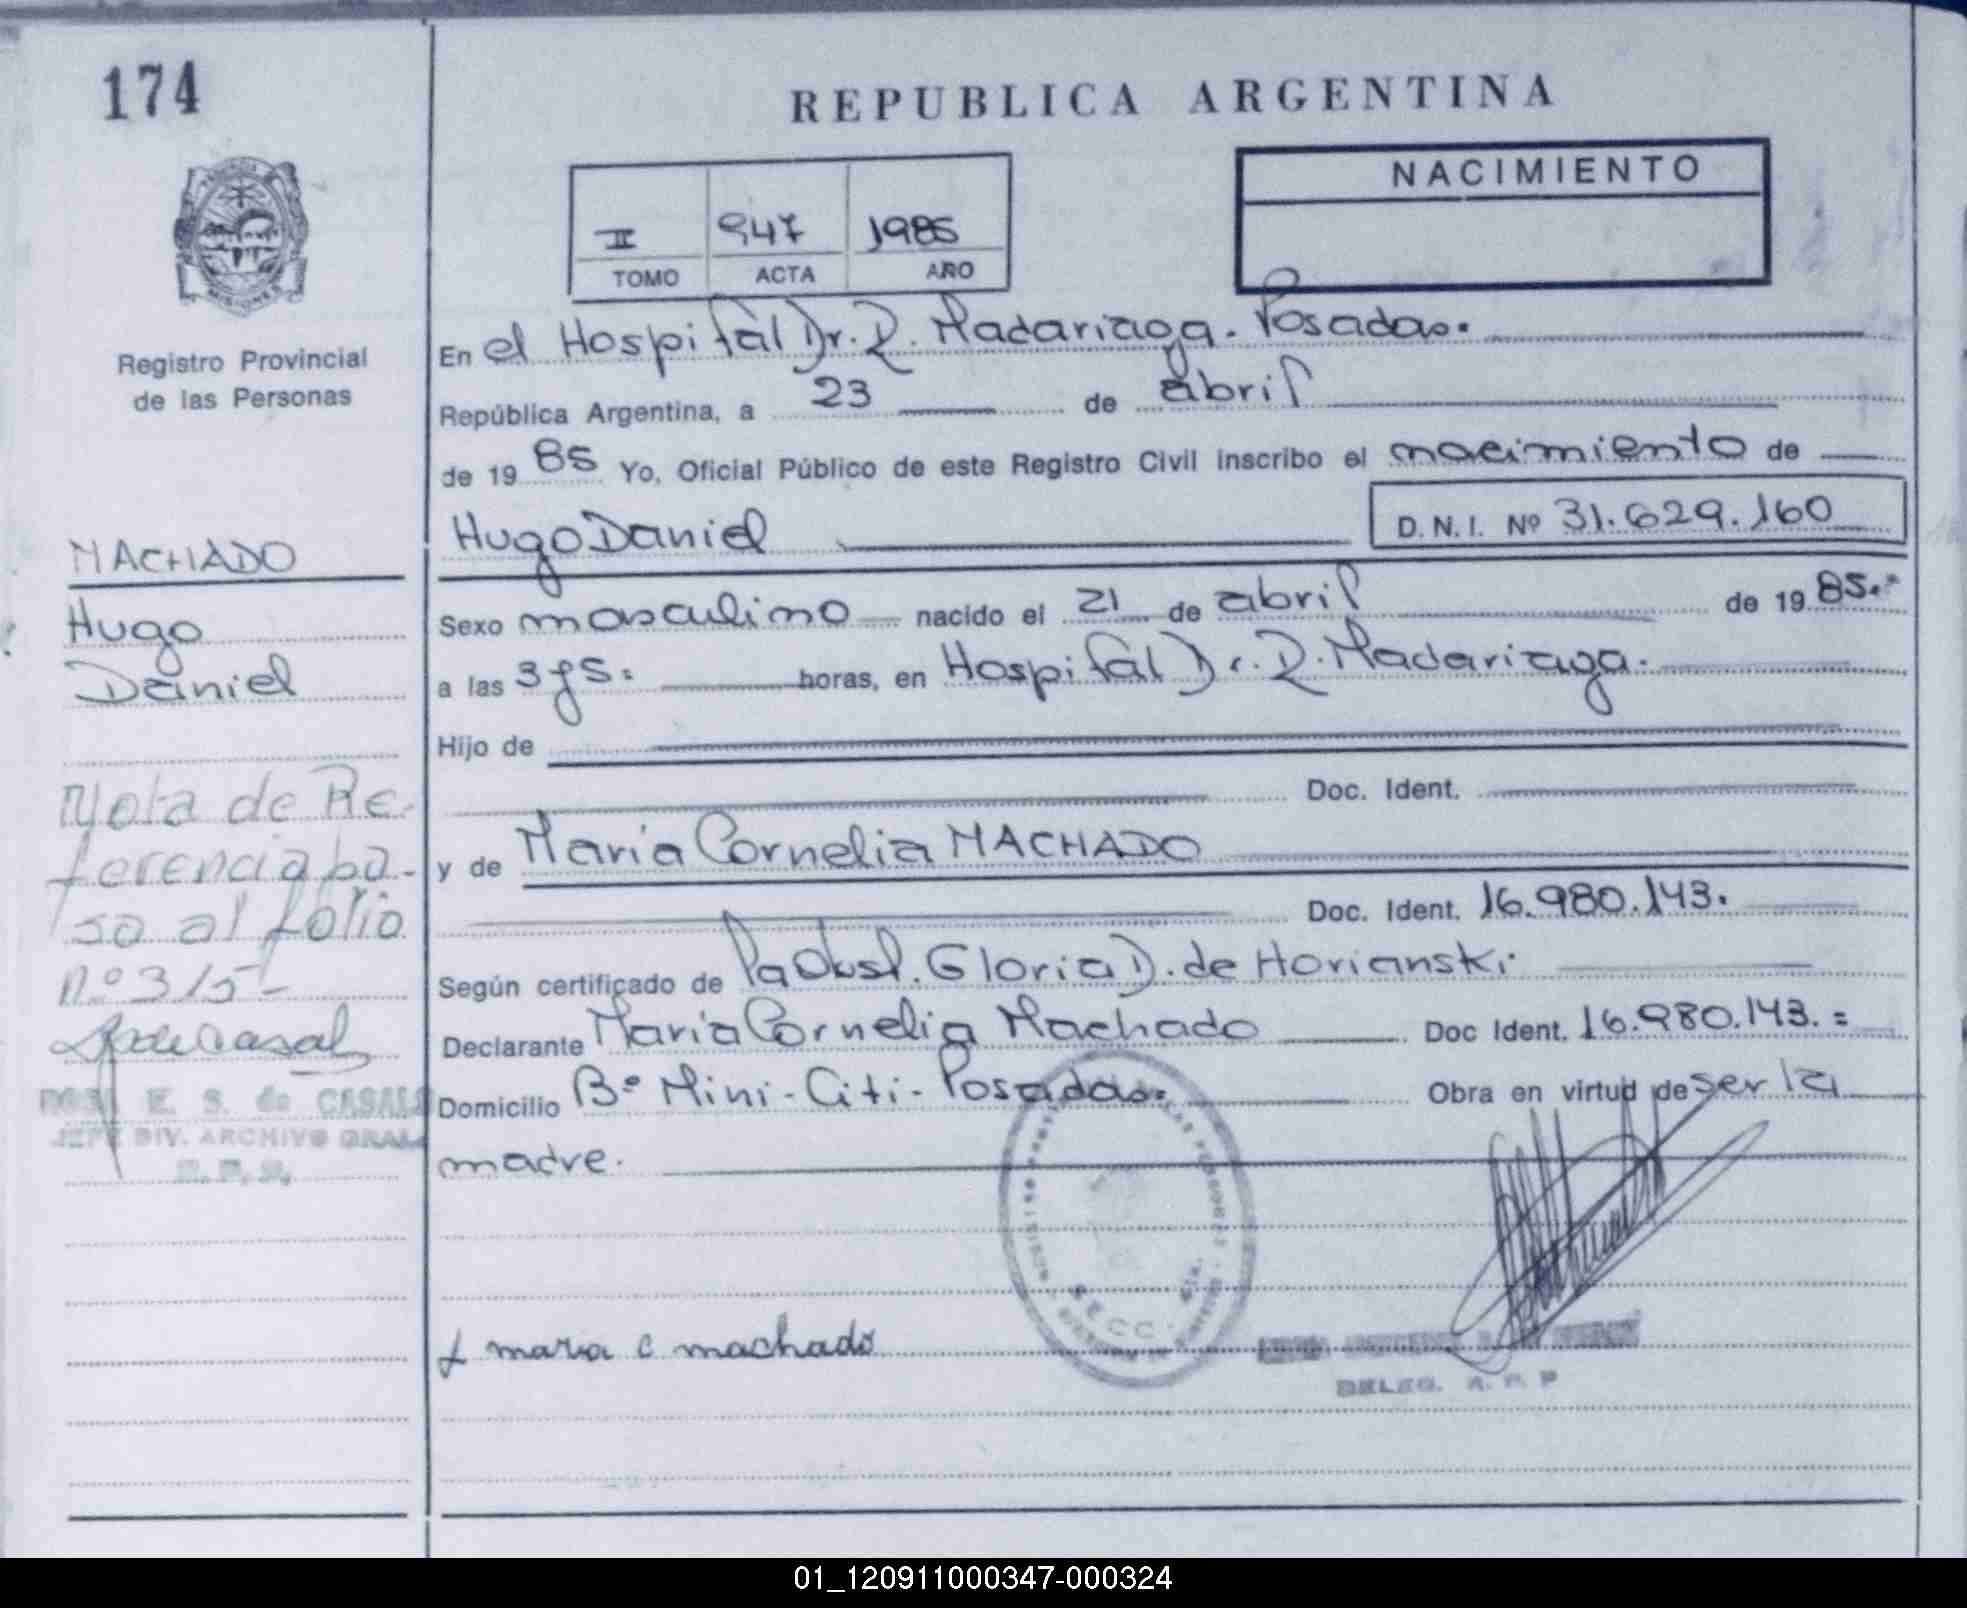 174
REPUBLICA ARGENTINA
NACIMIENTO
II 947 1985
TOMO ACTA AÑO
MISIONES
Registro Provincial
de las Personas
En el Hospital Dr. R. Madariaga. Posadas.
República Argentina, a 23 de abril
de 19 85 Yo, Oficial Público de este Registro Civil inscribo el nacimiento de
Hugo Daniel D.N.I. Nº 31.629.160
MACHADO
Hugo
Daniel
Sexo masculino nacido el 21 de abril de 19 85.=
a las 3 y 5: horas, en Hospital Dr. R. Madariaga.
Hijo de
Doc. Ident.
y de María Cornelia MACHADO
Doc. Ident. 16.980.143.
Según certificado de Pa Obst. Gloria D. de Horianski
Declarante María Cornelia Machado Doc Ident. 16.980.143.=
Domicilio Bº Mini-Citi-Posadas. Obra en virtud de ser la
madre.
Nota de Re-
ferencia pa-
sa al folio
n.º 315-
E. S. de CASALS
JEFE DIV. ARCHIVO GRAL.
R. P. P.
SECC. 4ta.
maria c machado
DELEG. R. P. P
01_120911000347-000324